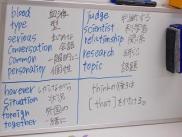 blood 血液
type 型
serious
conversation 会話
common 一般的に
personality 個性
judge 判断する
scientist 科学者
relationship 関係
research 研究
topic 話題
however しかしながら
situation 状況
foreign 外国の
together 一緒に
thinkの後は
[that]